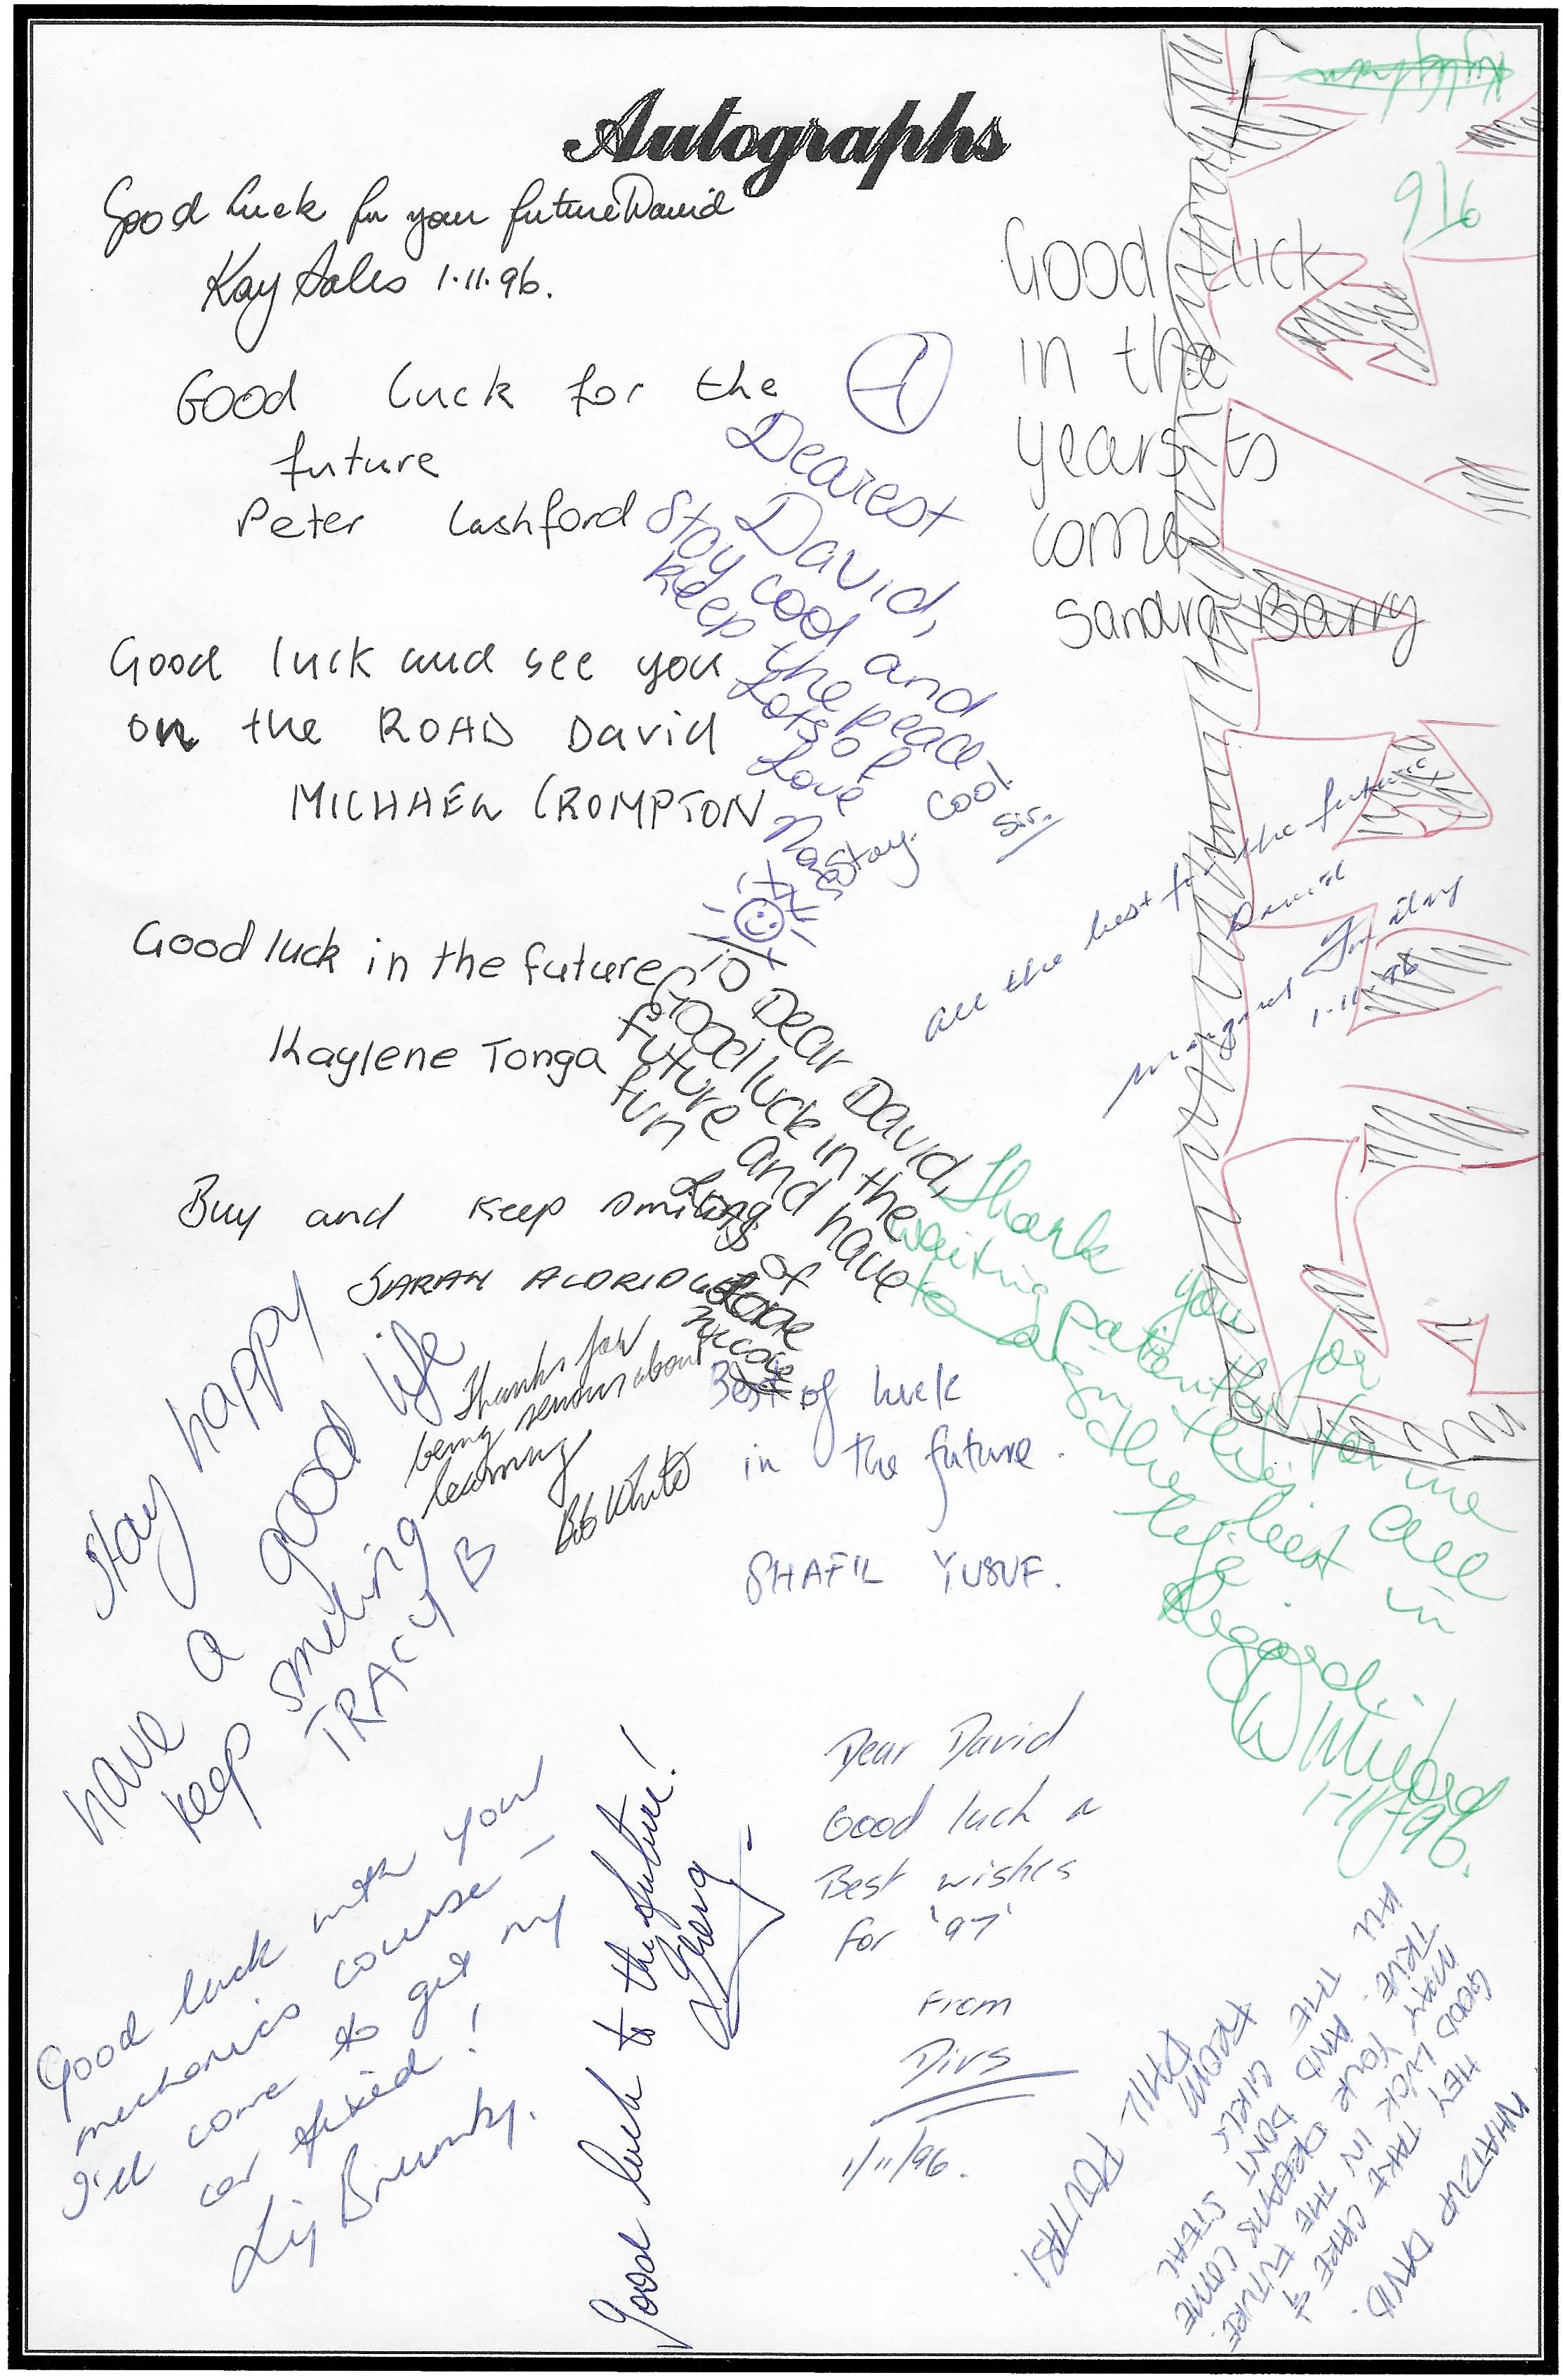 Autographs
Good luck for your future David
Kay Sales 1.11.96.
Good luck for the
future
Peter Lashford
Good luck and see you
on the ROAD David
MICHAEL CROMPTON
Good luck in the future
Kaylene Tonga
Buy and keep smiling
SARAH ALDRIDGE
Good luck
in the
years to
come
Sandra Barry
916
Dearest
David,
Stay cool and
keep the peace
Lotsof
Love
Stay. Cool
sir.
all the best for the future
David
1-11-96
To Dear David,
Good luck in the
future and have
fun
Long
of
Love
Nicole
Thank you for
waiting patiently for me
to sign this All
the best in
life
Regards.
W Mulord
1-11-96.
Thanks for
being serious about
learning
Bob White
Best of luck
in the future.
SHAFIL YUSUF.
Stay happy
have a good life
keep smiling
TRACY B
Good luck with your
mechanics course -
I'll come to get my
car fixed!
Good luck to the future!
Dear David
Good luck n
Best wishes
for '97'
From
Divs
1/11/96.
WHATZUP DAVID.
HEY TAKE CARE &
GOOD LUCK IN THE FUTURE.
MAY YOUR DREAMS COME
TRUE. AND DONT STEAL
ALL THE GIRLS
FROM